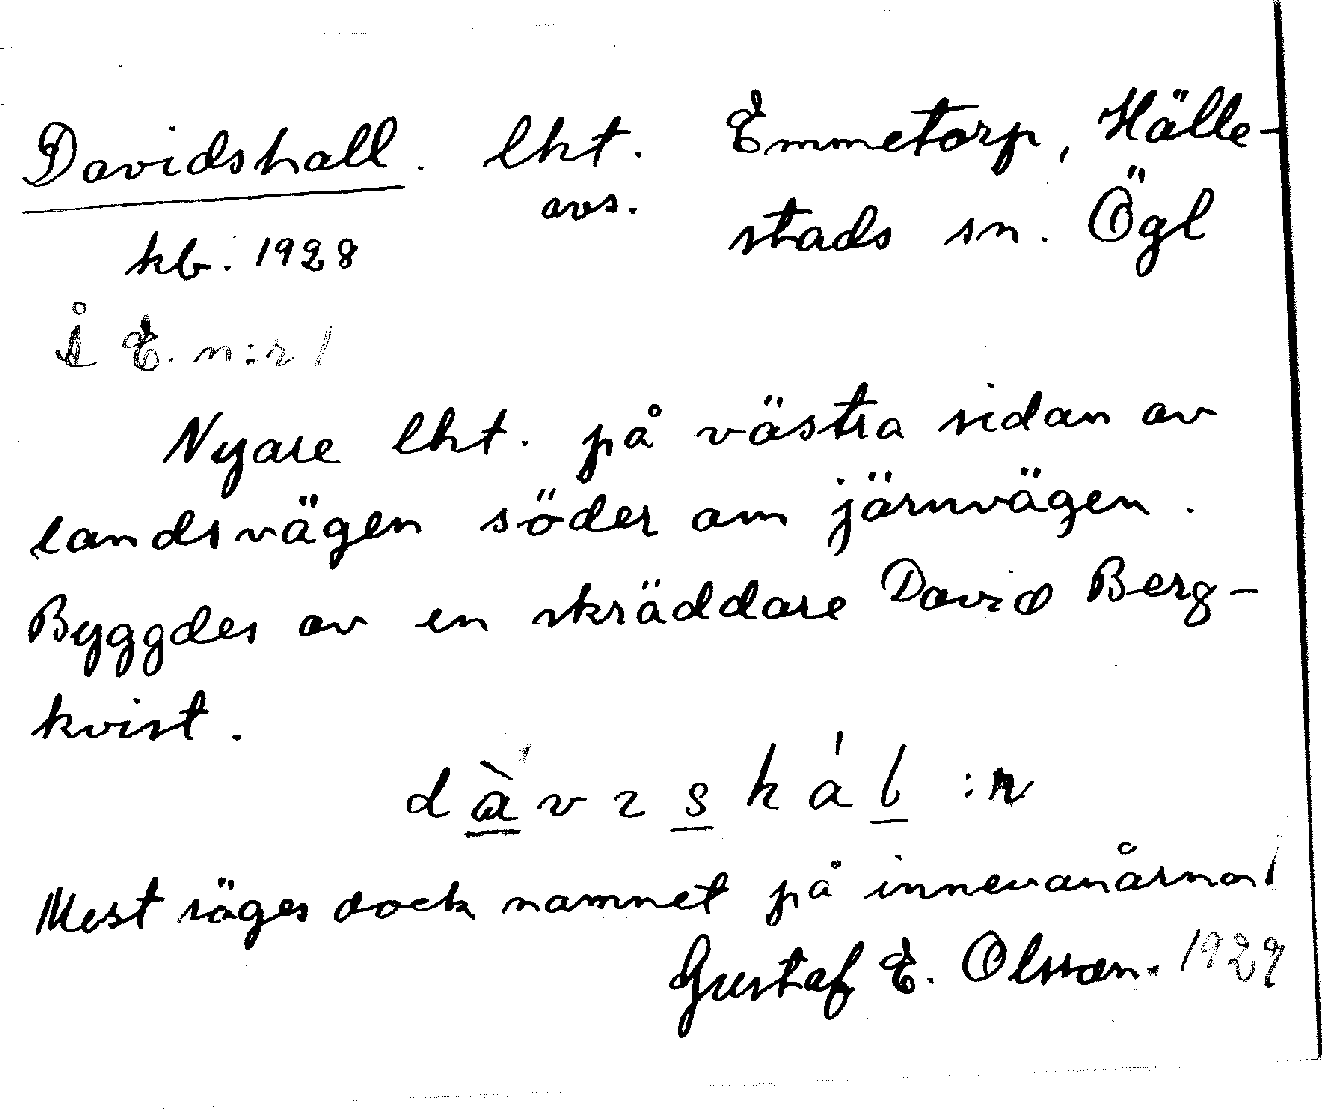 Davidshall. lht. Emmetorp, Hälle-
avs. stads sn. Ögl
kb. 1928
Å E. n:r 1
Nyare lht. på västra sidan av
landsvägen söder om järnvägen.
Byggdes av en skräddare David Berg-
kvist.
dàvɩshál :n
Mest säges dock namnet på innevanårna!
Gustaf E. Olsson. 1929